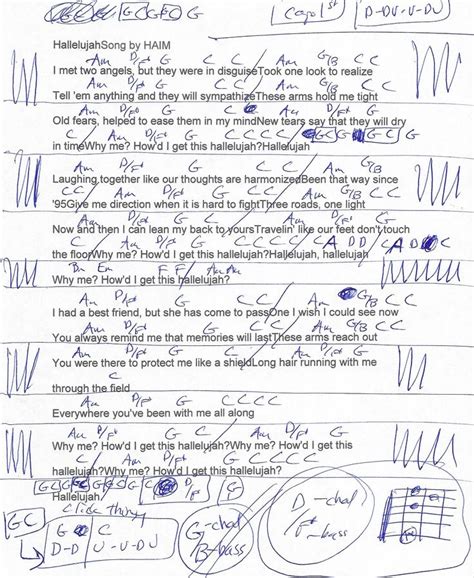 G C G C G capo 1st D-DU-U-DU
HallelujahSong by HAIM
Am D/F# G C C Am G/B C C
I met two angels, but they were in disguiseTook one look to realize
Am D/F# G C C Am
Tell 'em anything and they will sympathizeThese arms hold me tight
D/F# G C C Am D/F# G
Old fears, helped to ease them in my mindNew tears say that they will dry
C C Am D/F# G C C C C G C G C
in timeWhy me? How'd I get this hallelujah?Hallelujah
Am D/F# G C C Am G/B
Laughing together like our thoughts are harmonizedBeen that way since
C C Am D/F# G C C Am
'95Give me direction when it is hard to fightThree roads, one light
D/F# G C C Am D/F# G
Now and then I can lean my back to yoursTravelin' like our feet don't touch
C C Am D/F# G C C C A D D C A D
the floorWhy me? How'd I get this hallelujah?Hallelujah, hallelujah
Bm Em F F Am Am
Why me? How'd I get this hallelujah?
Am D/F# G C C Am G/B C C
I had a best friend, but she has come to passOne I wish I could see now
Am D/F# G C C Am G/B C C
You always remind me that memories will lastThese arms reach out
Am D/F# G C C Am D/F# G
You were there to protect me like a shieldLong hair running with me
C
through the field
Am D/F# G C C
Everywhere you've been with me all along
Am D/F# G C C Am D/F# G
Why me? How'd I get this hallelujah?Why me? How'd I get this
C C Am D/F# G C C C C
hallelujah?Why me? How'd I get this hallelujah?
G C G C G C G C D/F# G
Hallelujah
G C G C D-D U-U-DU
G-chord
B-bass
D-chord
F#-bass